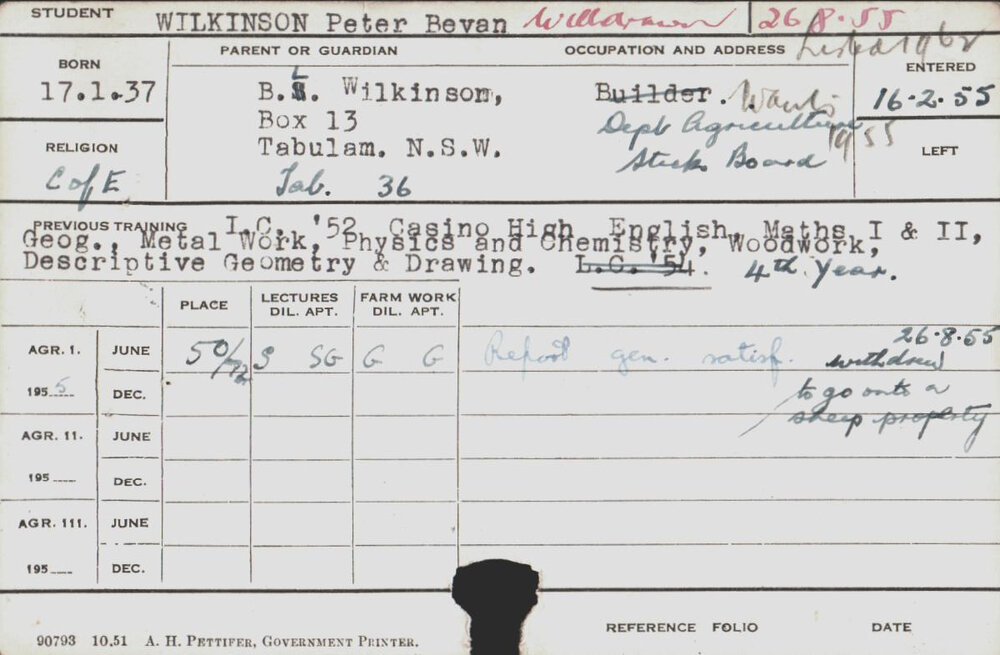 STUDENT WILKINSON Peter Bevan Withdrawn 26 8·55
Listed 1962
BORN PARENT OR GUARDIAN OCCUPATION AND ADDRESS ENTERED
17.1.37 B.L. Wilkinson, Builder. 16·2·55
Box 13 Dept Agriculture
1955
RELIGION Tabulam. N.S.W. Stock Board LEFT
C of E Tab. 36
PREVIOUS TRAINING I.C. '52 Casino High English, Maths I & II,
Geog., Metal Work, Physics and Chemistry, Woodwork,
Descriptive Geometry & Drawing. L.C. '54. 4th Year.
PLACE LECTURES FARM WORK
DIL. APT. DIL. APT.
AGR. 1. JUNE 50/72 S SG G G Report gen. satisf. 26·8·55
withdrew
195 5 DEC. to go onto a
sheep property
AGR. 11. JUNE
195 DEC.
AGR. 111. JUNE
195 DEC.
90793 10.51 A. H. PETTIFER, GOVERNMENT PRINTER. REFERENCE FOLIO DATE